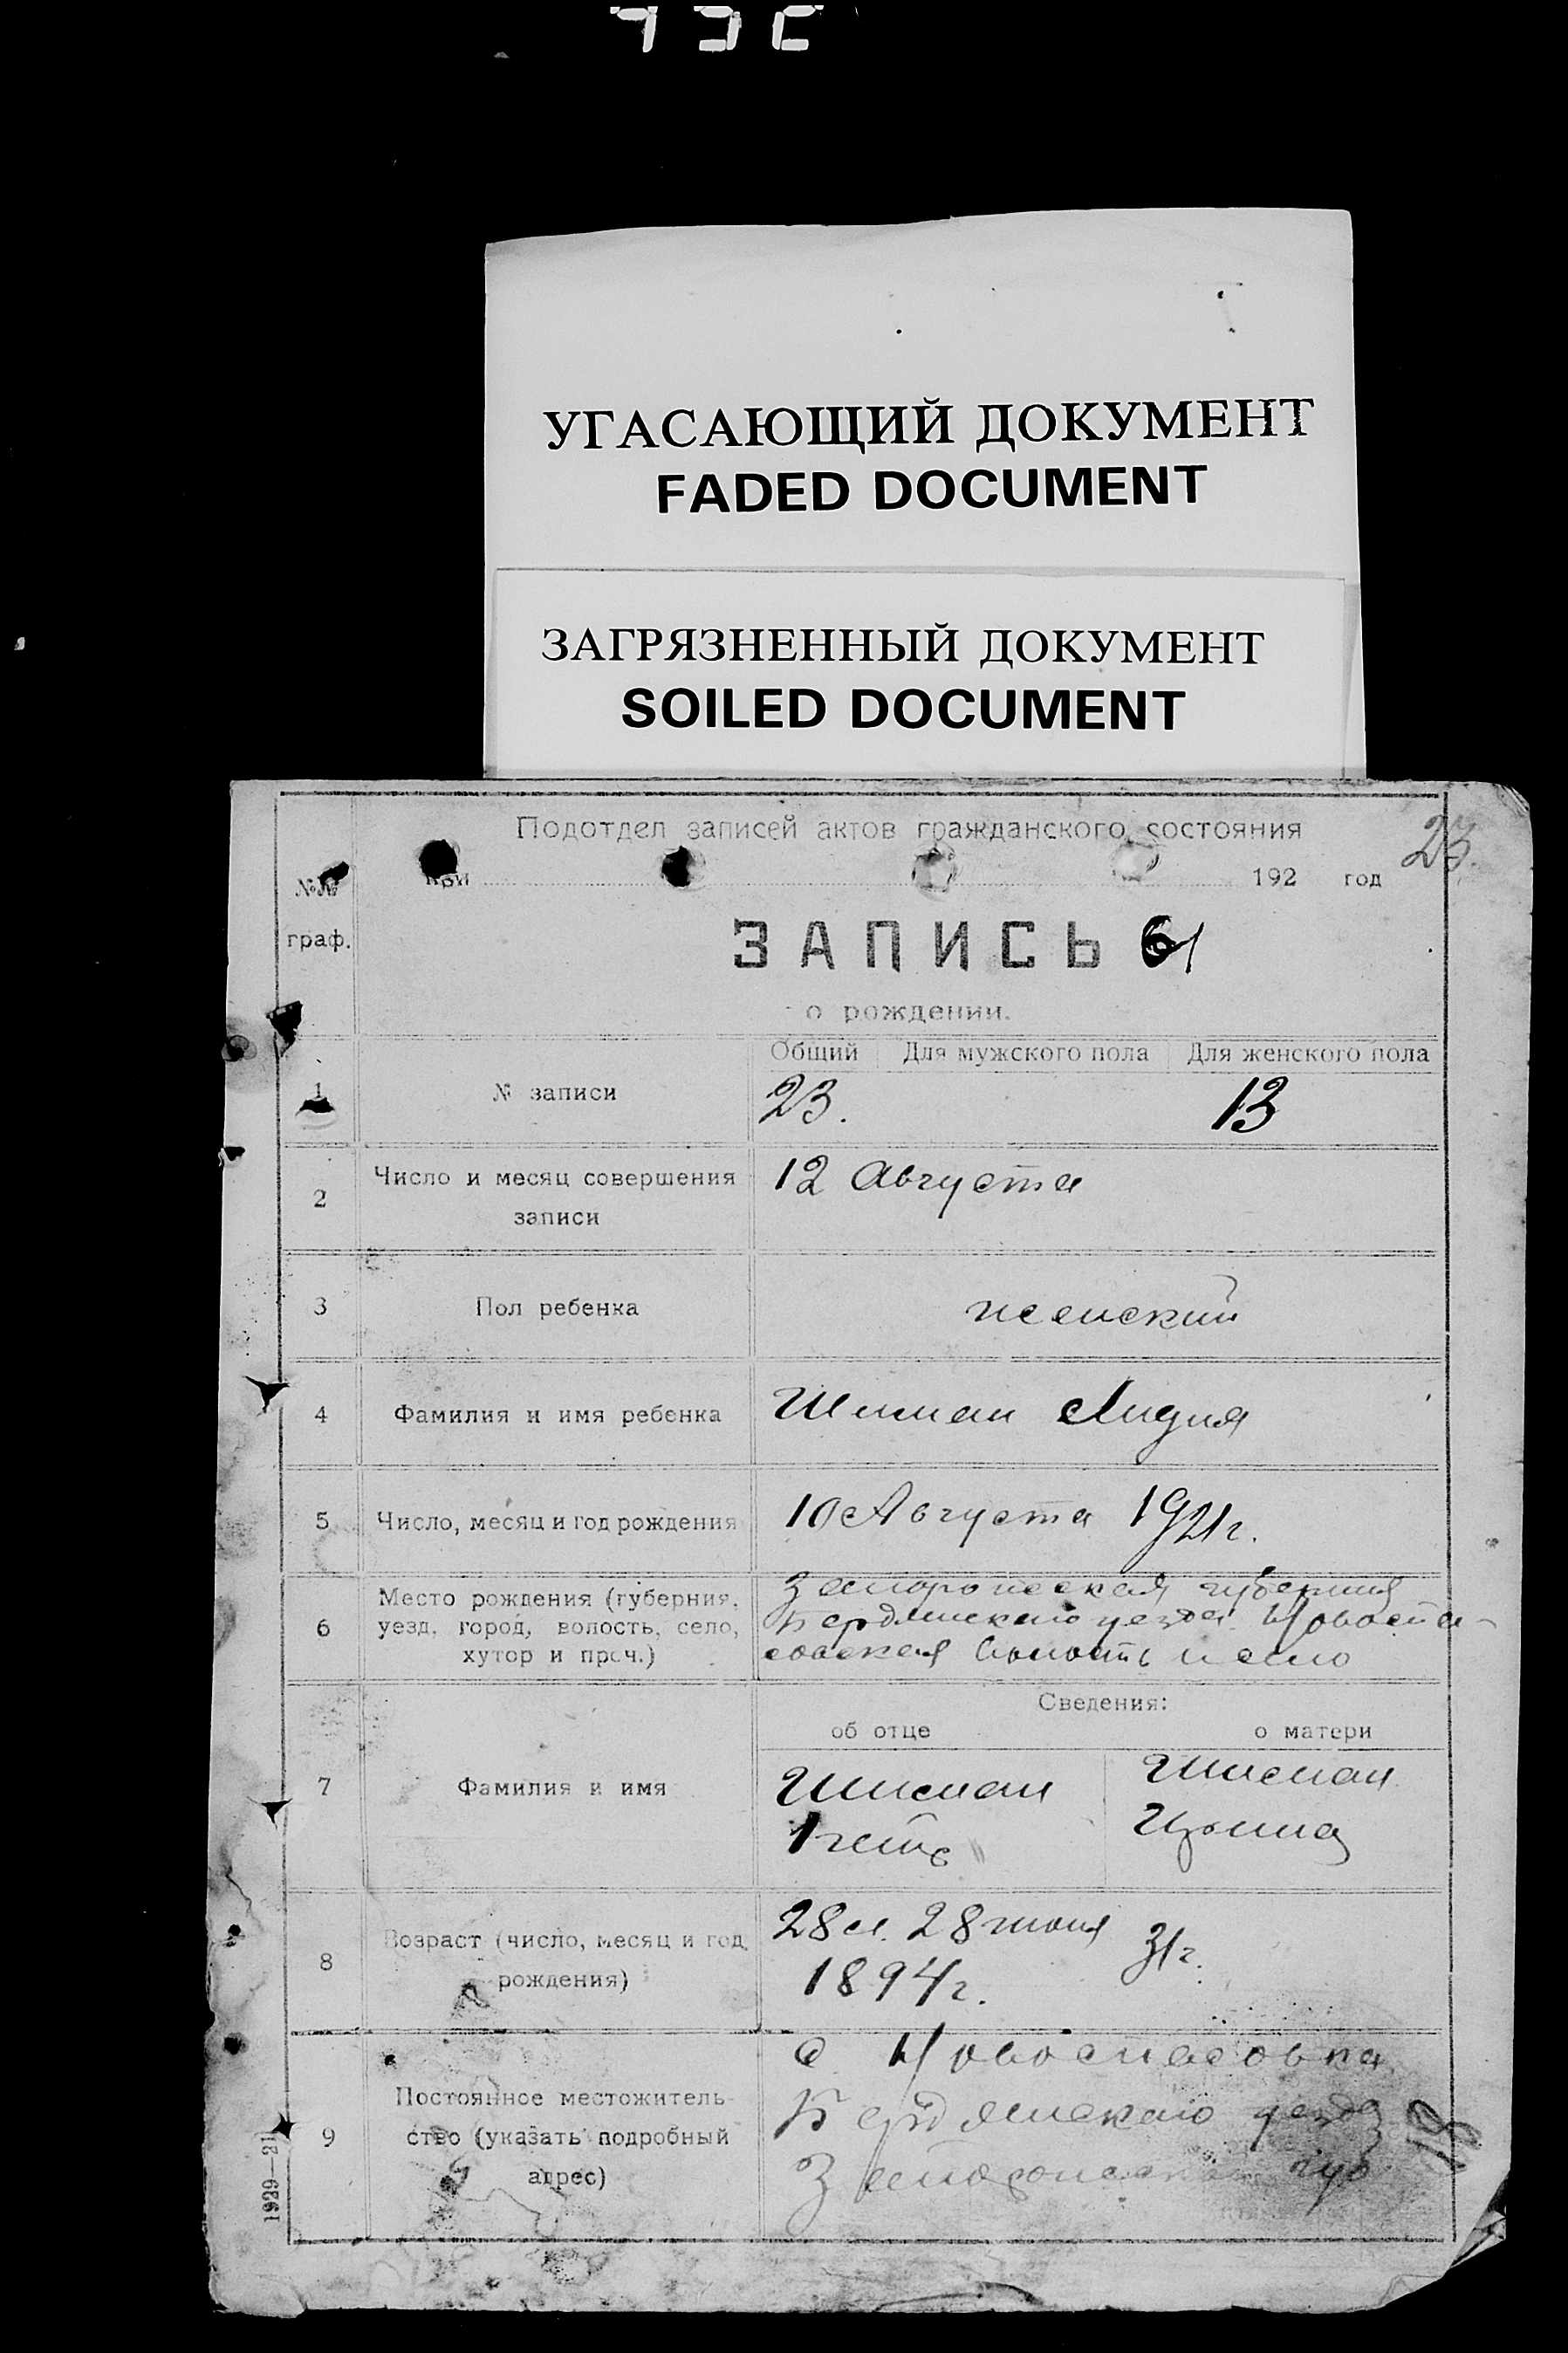 УГАСАЮЩИЙ ДОКУМЕНТ
FADED DOCUMENT
ЗАГРЯЗНЕННЫЙ ДОКУМЕНТ
SOILED DOCUMENT
Подотдел записей актов гражданского состояния
23.
№№ граф.
при 192 год
ЗАПИСЬ 61
о рождении.
Общий Для мужского пола Для женского пола
1 № записи 23. 13
2 Число и месяц совершения записи 12 Августа
3 Пол ребенка женский
4 Фамилия и имя ребенка Шишман Лидия
5 Число, месяц и год рождения 10 Августа 1921 г.
6 Место рождения (губерния, уезд, город, волость, село, хутор и проч.)
Запорожская губерния
Бердянского уезда Новоспа-
совская волость и село
Сведения:
об отце о матери
7 Фамилия и имя
Шишман Шишман
Петр
8 Возраст (число, месяц и год рождения)
28 л. 28 июня 31 г.
1894 г.
9 Постоянное местожительство (указать подробный адрес)
с. Новоспасовка
Бердянского уезда
Запорожской губ
1929—21